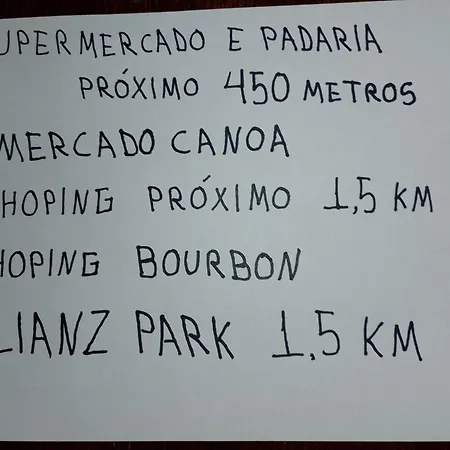 UPERMERCADO E PADARIA
PRÓXIMO 450 METROS
MERCADO CANOA
HOPING PRÓXIMO 1,5 KM
HOPING BOURBON
LIANZ PARK 1,5 KM